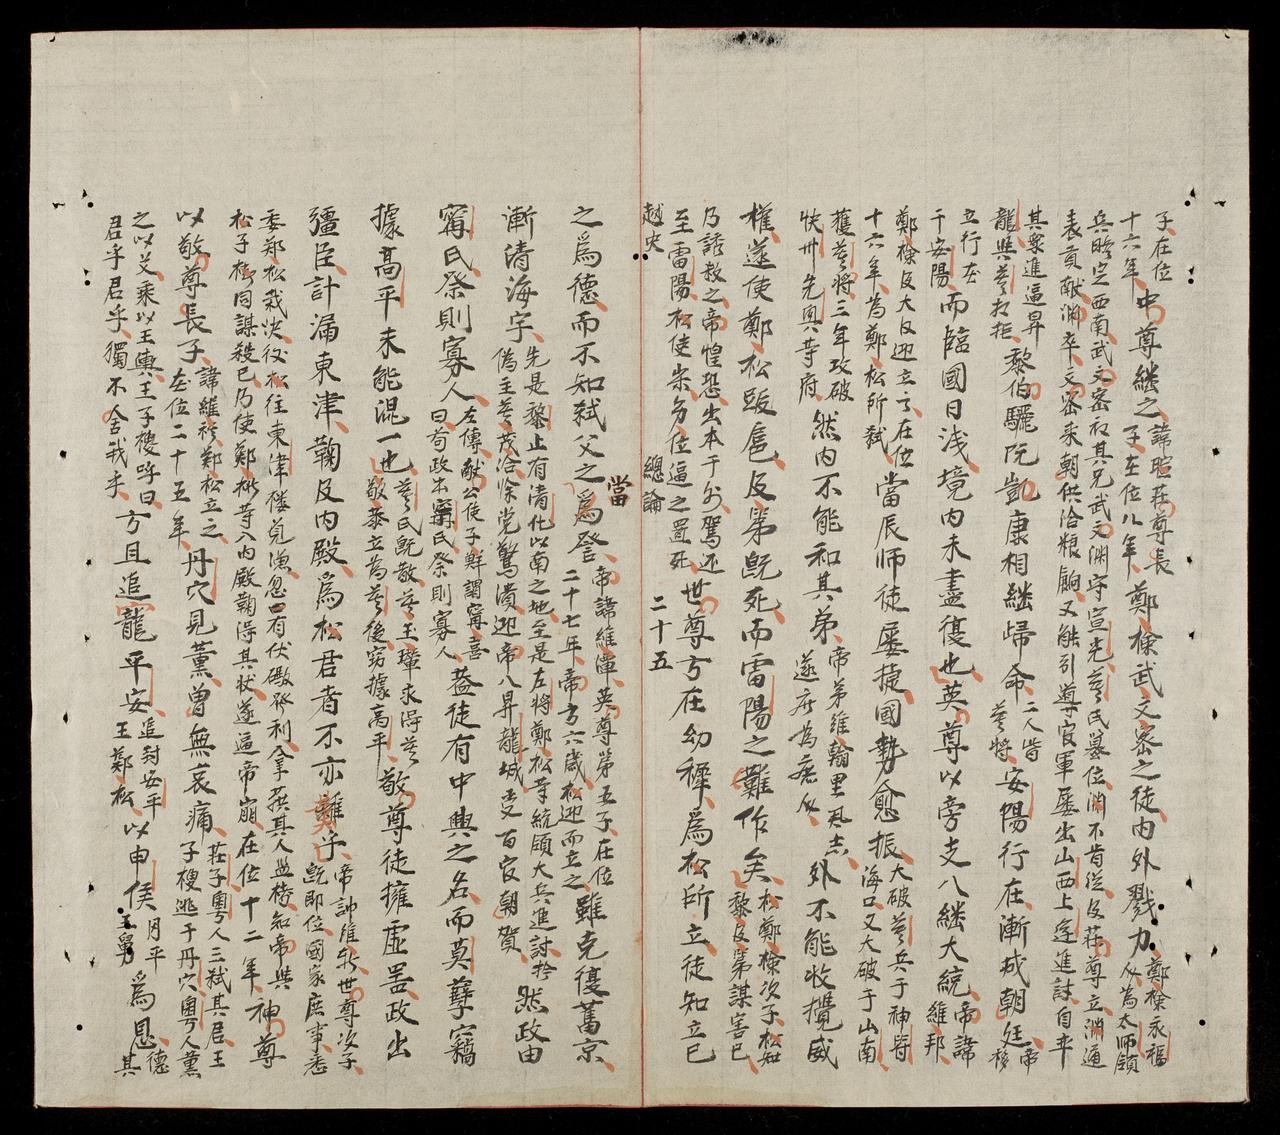 子在位
十六年中尊繼之諱暄莊尊長
子在位八年鄭檢武文密之徒內外戮力鄭檢永福
人為太師領
兵略定西南武文密和其兄武文淵守宣光莫氏篡位淵不肯從及莊尊立淵遁
表貢獻淵卒文密來朝供洽粮餉又能引導官軍屡出山西上逹進討自率
其衆進逼昇
龍與莫相拒黎伯驪阮凱康相繼歸命二人皆
莫將安陽行在漸成朝廷帝
移
立行在
于安陽而臨國日淺境內未盡復也英尊以旁支入繼大統帝諱
維邦
鄭檢及大臣迎立之在位
十六年為鄭松所弑當辰師徒屡捷國勢愈振大破莫兵于神符
海口又大破于山南
獲莫將三年攻破
快州先興等府然內不能和其弟帝弟維翰里
遂府為庶人外不能收攬威
權遂使鄭松跋扈及第既死而雷陽之難作矣松鄭檢次子松知
黎及第謀害己
乃誘殺之帝惶恐出本于外駕还
至雷陽松使宗弟位逼之置死世尊方在幼穉為松所立徒知立巳
越史 總論 二十五
之為德而不知弑父之為當
帝諱維潭英尊第五子在位
二十七年帝方六歲松迎而立之雖克復舊京
漸清海宇先是黎止有清化以南之地至是左將鄭松等統領大兵進討擒
偽主莫茂洽餘党驚潰迎帝入昇龍城受百官朝賀然政由
甯氏祭則寡人左傳献公使子鮮謂甯喜
曰苟政由甯氏祭則寡人葢徒有中興之名而莫孽竊
據高平未能混一也莫氏既敬莫王瓚求得莫
敬恭立為莫後竊據高平敬尊徒擁虛噐政出
彊臣計漏東津鞠及內殿為松君者不亦難乎帝諱維新世尊次子
既即位國家庶事悉
委鄭松裁决後松往東津楼覓漁忽有伏儌發利拿獲其人监栲知帝與
松子樁同謀殺己乃使鄭樅等入內殿鞫得其狀遂逼帝崩在位十二年神尊
以敬尊長子諱維祺鄭松立之
在位二十五年丹穴見薰曾無哀痛莊子粵人三弑其君王
子梗逃于丹穴粵人薰
之以艾乘以王輿王子梗呼曰
君乎君乎獨不舍我乎方且追寵平安追封安平
王鄭松以申侯月平
王舅為恩德
其